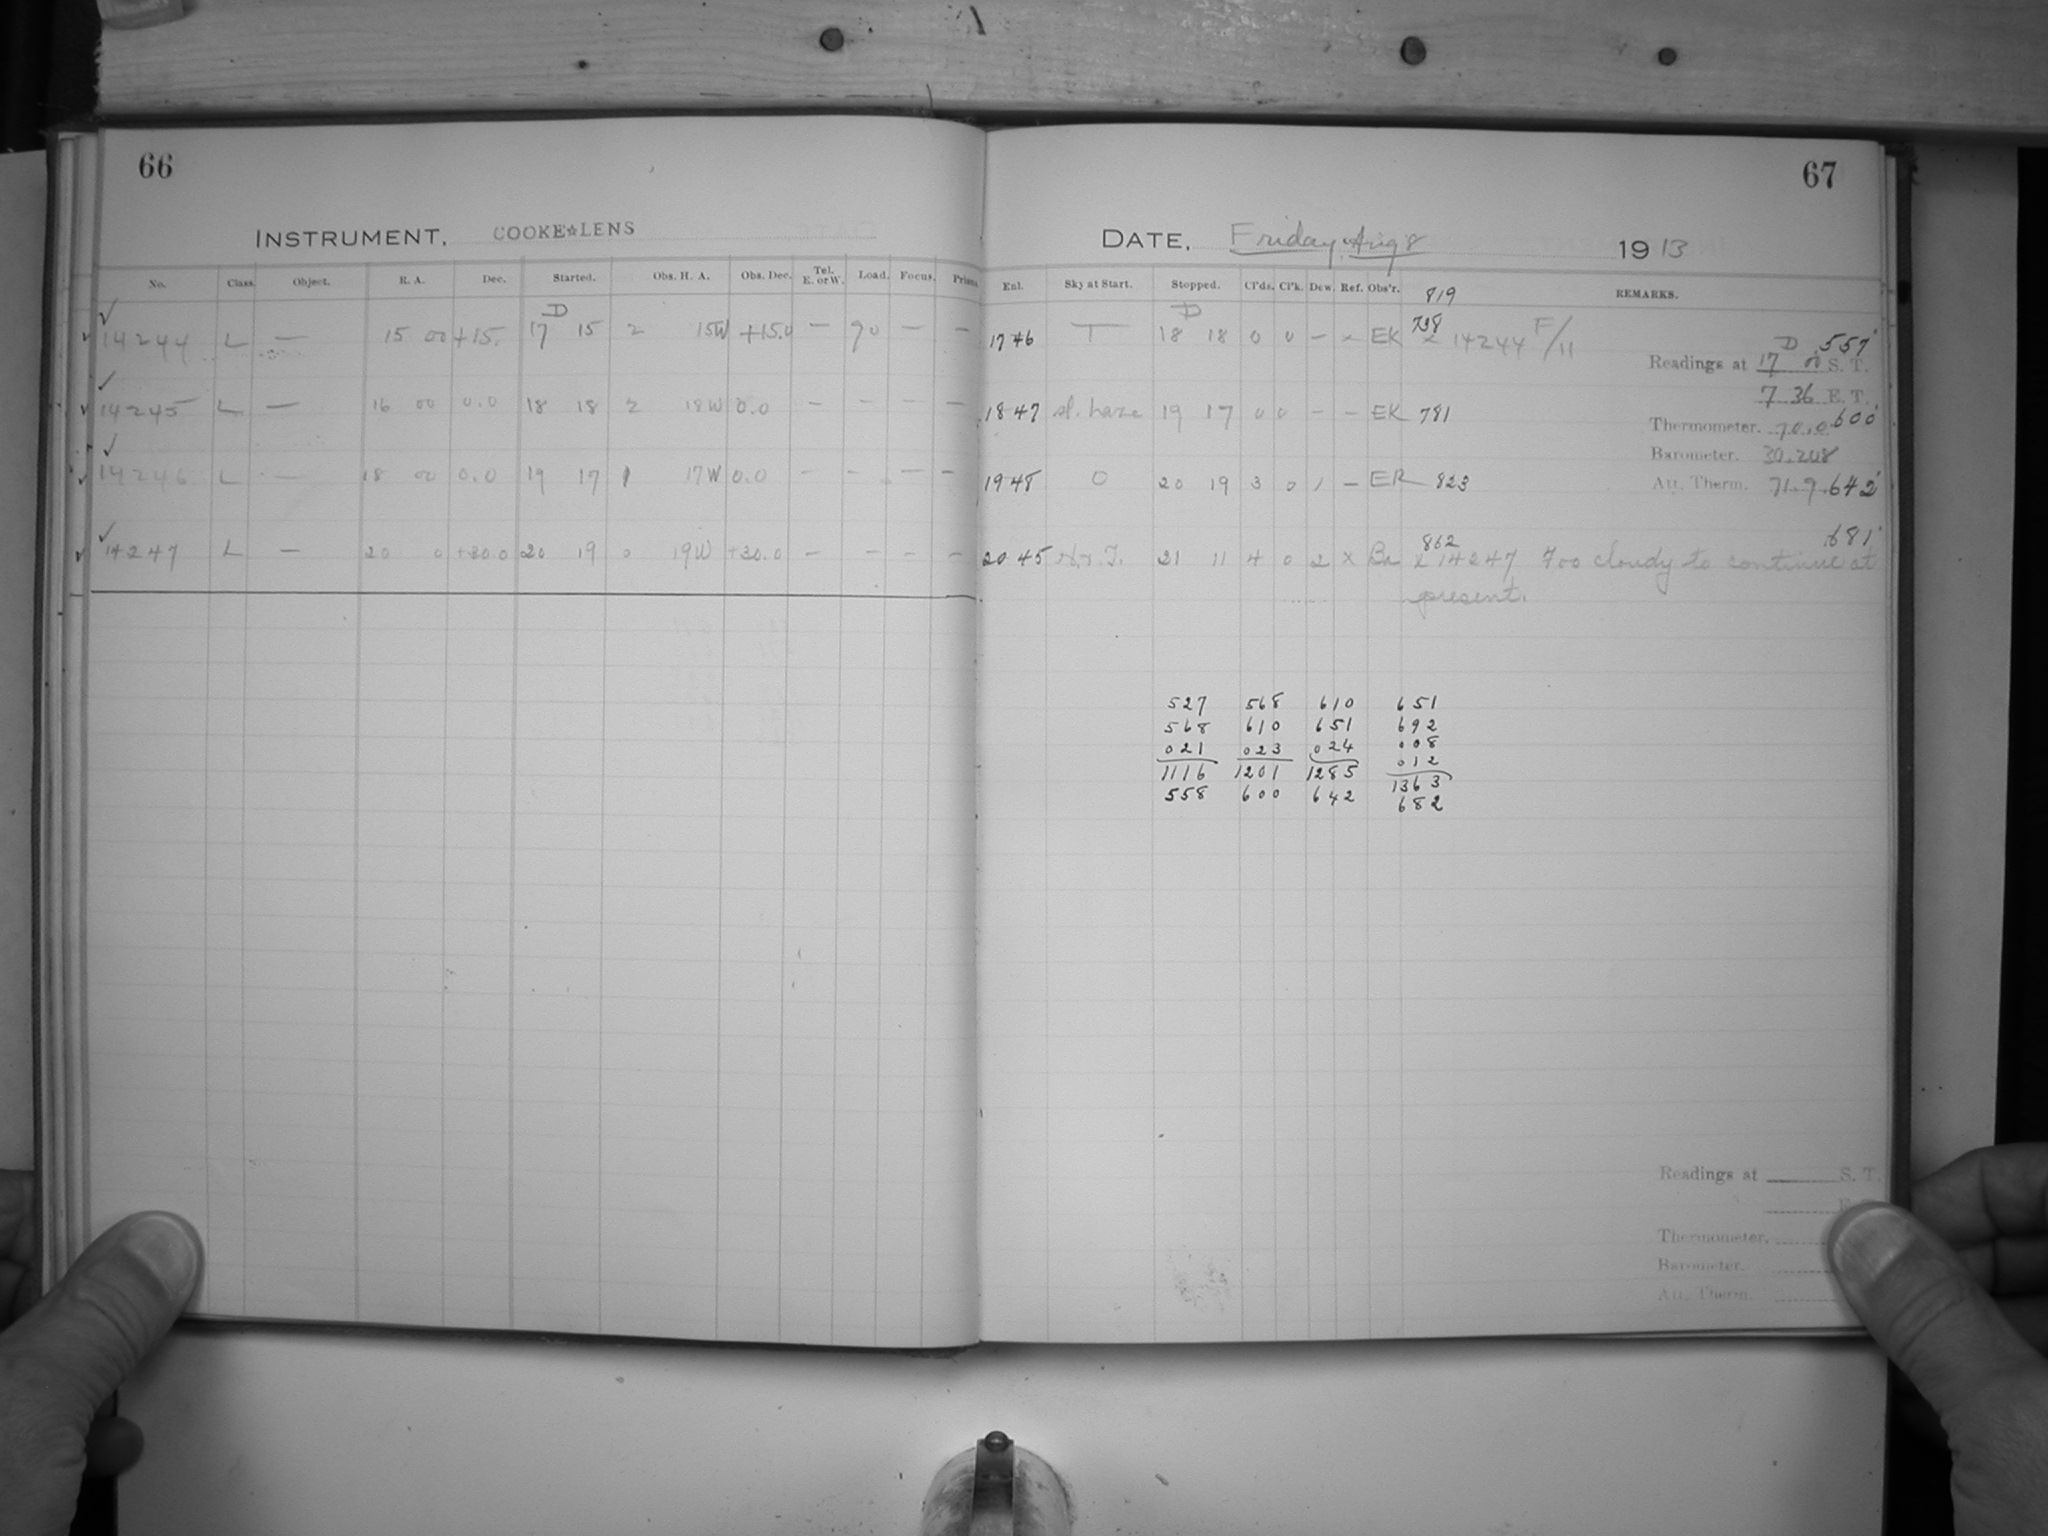 66
INSTRUMENT, COOKE☆LENS
No. Class. Object. R. A. Dec. Started. Obs. H. A. Obs. Dec. Tel. E. or W. Load. Focus. Prism.
✓ D
✓ 14244 L — 15 00 +15. 17 15 2 15W +15.0 — 90 — —
✓
✓ 14245 L — 16 00 0.0 18 18 2 18W 0.0 — — — —
✓
✓ 14246 L — 18 00 0.0 19 17 1 17W 0.0 — — — —
✓
✓ 14247 L — 20 0 +30.0 20 19 0 19W +30.0 — — — —
67
DATE, Friday Aug 8 1913
Enl. Sky at Start. Stopped. Cl'ds. Cl'k. Dew. Ref. Obs'r. 819 REMARKS.
D 738
17 46 T 18 18 0 0 — x EK x 14244 F/11
D .557
Readings at 17 00 S. T.
7 36 E. T.
18 47 sl. haze 19 17 0 0 — — EK 781
Thermometer. 70.0 .600
Barometer. 30.208
19 48 O 20 19 3 0 1 — ER 823
Att. Therm. 71.9 .642
862 .681
20 45 21 11 4 0 2 x x 14247 Too cloudy to continue at
present.
527 568 610 651
568 610 651 692
021 023 024 008
012
1116 1201 1285 1363
558 600 642 682
Readings at S. T.
Thermometer.
Barometer.
Att. Therm.